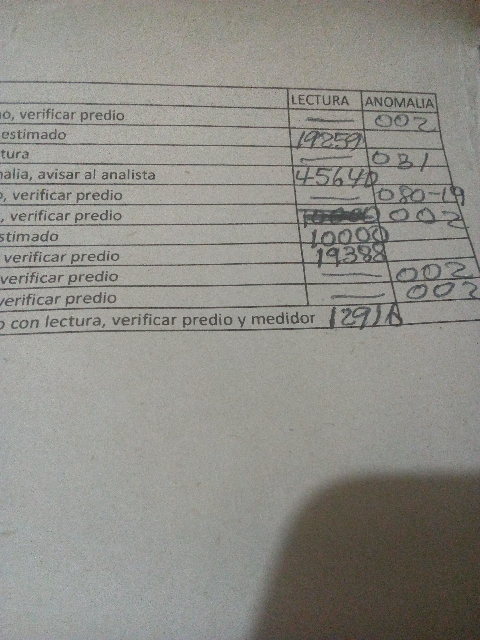 LECTURA ANOMALIA
o, verificar predio — 002
estimado 19259
tura — 031
nalia, avisar al analista 45640
o, verificar predio — 080-19
, verificar predio 002
stimado 10000
verificar predio 19388
verificar predio — 002
verificar predio — 002
o con lectura, verificar predio y medidor